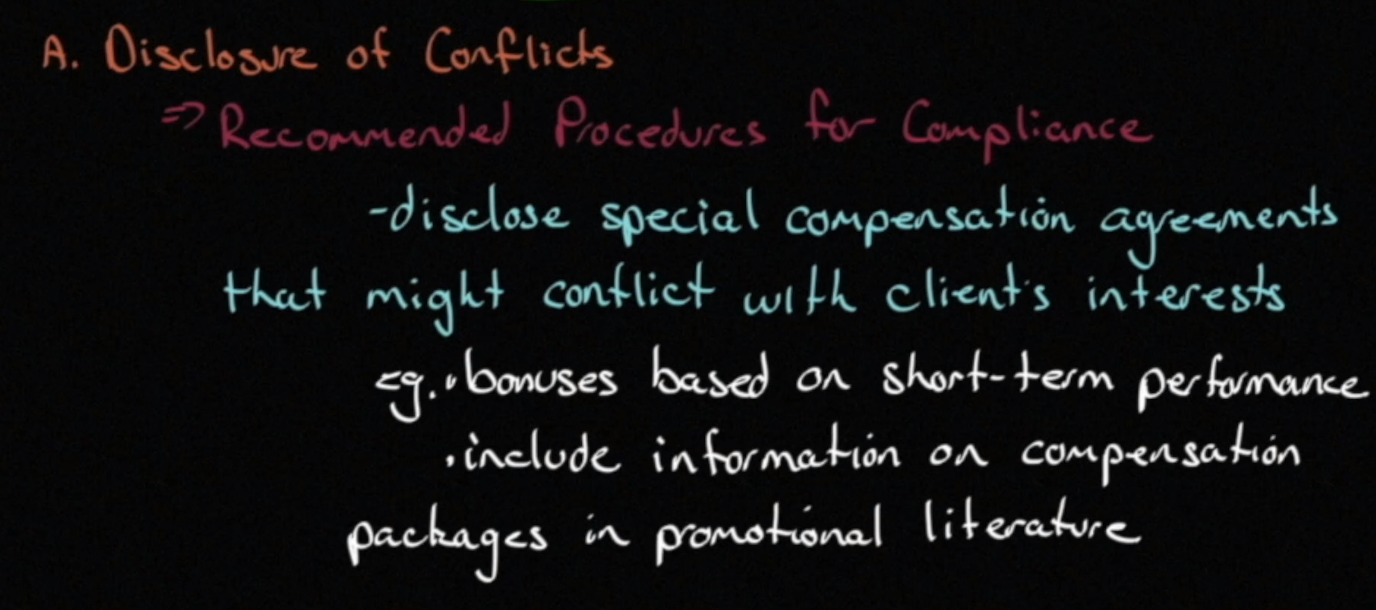 A. Disclosure of Conflicts
⇒ Recommended Procedures for Compliance
- disclose special compensation agreements
that might conflict with client's interests
eg. • bonuses based on short-term performance
• include information on compensation
packages in promotional literature